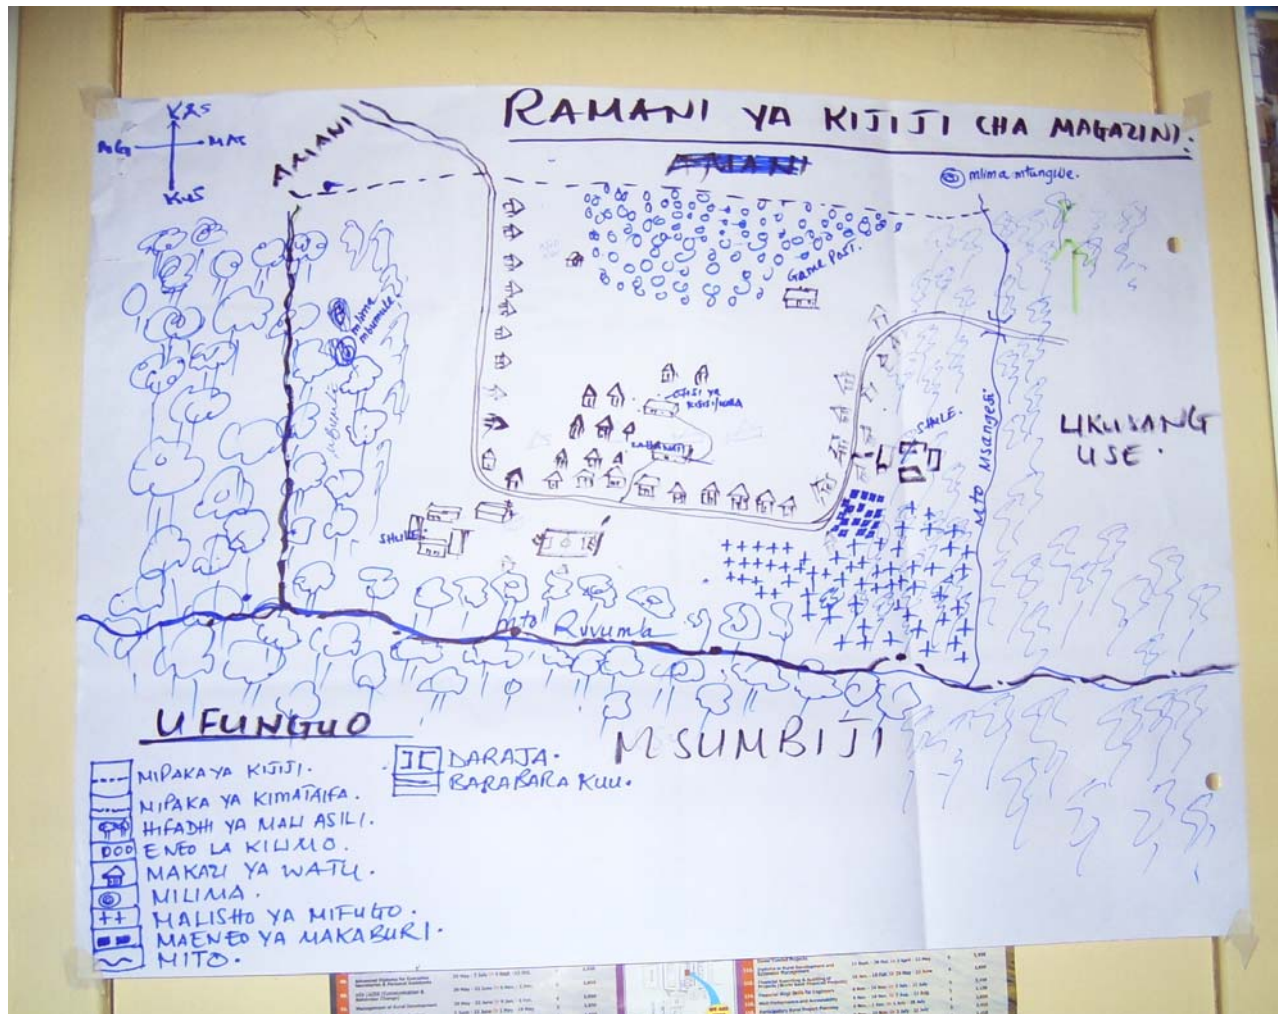 RAMANI YA KIJIJI CHA MAGAZINI.
KAS
MAS
KUS
AMANI
AMANI
mlima mtungwe.
GAME POST.
mlima
mbumule
OFISI YA
SHULE.
UKUSANG
USE.
MTO Msangesi
SHULE
mto Ruvuma
MSUMBIJI
UFUNGUO
MIPAKA YA KIJIJI.
MIPAKA YA KIMATAIFA.
HIFADHI YA MALI ASILI.
ENEO LA KILIMO.
MAKAZI YA WATU.
MILIMA.
MALISHO YA MIFUGO.
MAENEO YA MAKABURI.
MITO.
DARAJA.
BARABARA KUU.